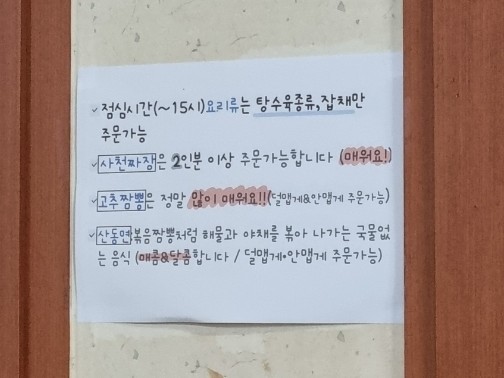 ✓점심시간(~15시)요리류는 탕수육종류,잡채만
주문가능
✓사천짜장은 2인분 이상 주문가능합니다 (매워요!)
✓고추짬뽕은 정말 많이 매워요!!(덜맵게&안맵게 주문가능)
✓산동면볶음짬뽕처럼 해물과 야채를 볶아 나가는 국물없
는 음식 (매콤&달콤합니다 / 덜맵게•안맵게 주문가능)